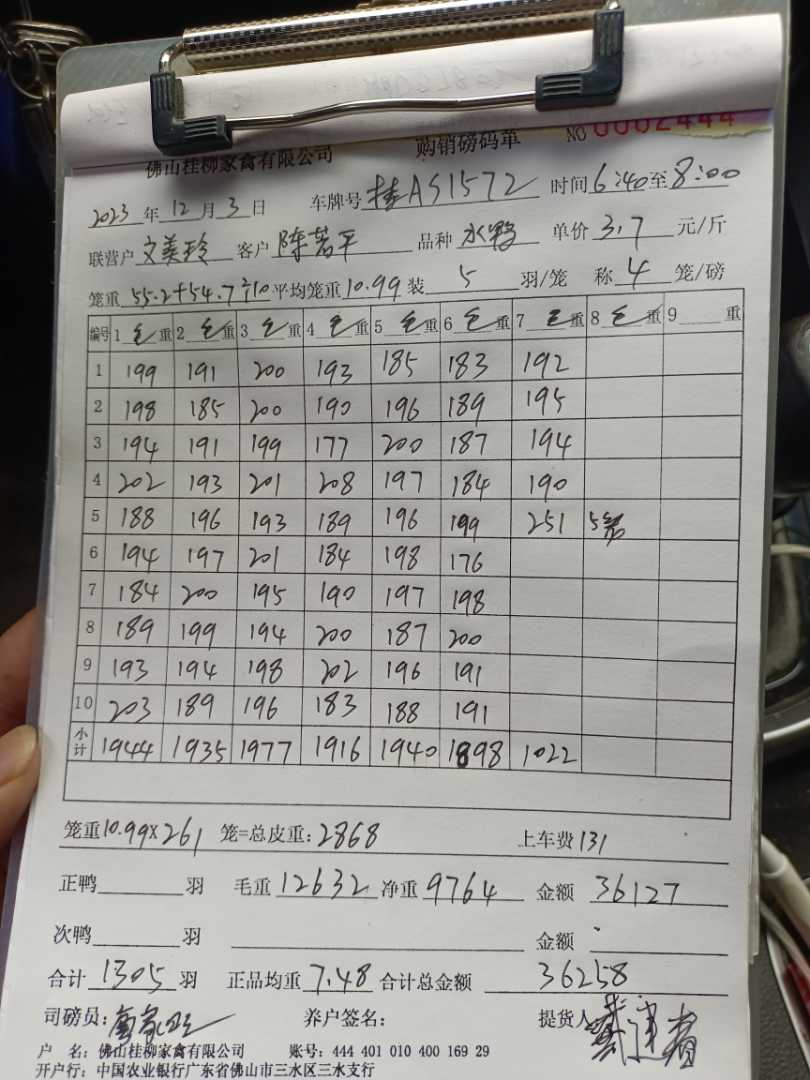 佛山桂柳家禽有限公司 购销磅码单 NO 0002444
2023 年 12 月 3 日 车牌号 桂AS1572 时间 6:40 至 8:00
联营户 文美玲 客户 陈若平 品种 水鸭 单价 3.7 元/斤
笼重 55.2+54.7÷10 平均笼重 10.99 装 5 羽/笼 称 4 笼/磅
编号 1 毛 重 2 毛 重 3 毛 重 4 毛 重 5 毛 重 6 毛 重 7 毛 重 8 毛 重 9 重
1 199 191 200 193 185 183 192
2 198 185 200 190 196 189 195
3 194 191 199 177 200 187 194
4 202 193 201 208 197 184 190
5 188 196 193 189 196 199 251 5笼
6 194 197 201 184 198 176
7 184 200 195 190 197 198
8 189 199 194 200 187 200
9 193 194 198 202 196 191
10 203 189 196 183 188 191
小计 1944 1935 1977 1916 1940 1898 1022
笼重 10.99×261 笼=总皮重: 2868 上车费 131
正鸭 羽 毛重 12632 净重 9764 金额 36127
次鸭 羽 金额
合计 1305 羽 正品均重 7.48 合计总金额 36258
司磅员: 养户签名: 提货人
户 名: 佛山桂柳家禽有限公司 账号: 444 401 010 400 169 29
开户行: 中国农业银行广东省佛山市三水区三水支行